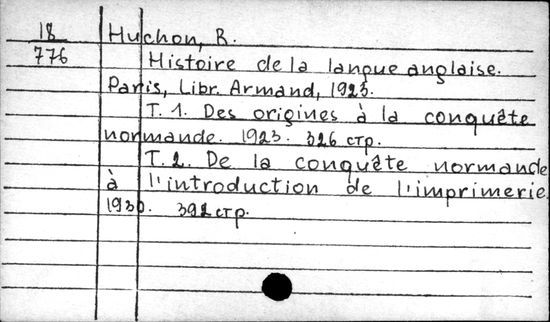 18 Huchon, R.
776 Histoire de la langue anglaise.
Paris, Libr. Armand, 1923.
T. 1. Des origines à la conquête
normande. 1923. 326 стр.
T. 2. De la conquête normande
à l'introduction de l'imprimerie.
1930. 392 стр.